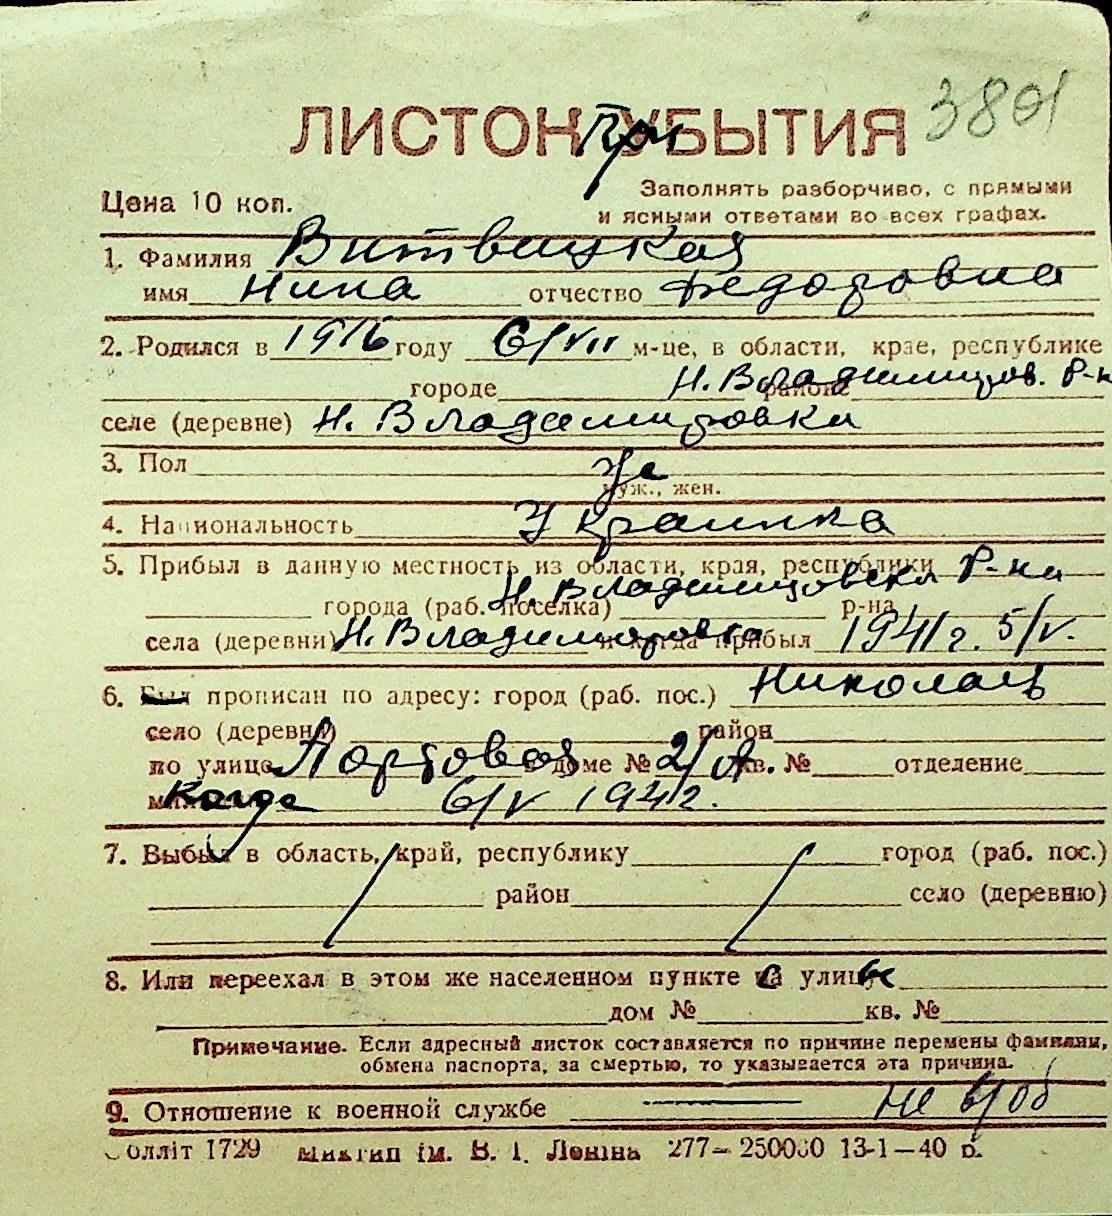 3801
ЛИСТОК При УБЫТИЯ
Цена 10 коп.
Заполнять разборчиво, с прямыми
и ясными ответами во всех графах.
1. Фамилия Витвицкая
имя Нина отчество Федоровна
2. Родился в 1916 году 6/VII м-це, в области, крае, республике
городе районе Н. Владимиров. р-н
селе (деревне) Н. Владимировки
3. Пол Же
муж., жен.
4. Национальность Украинка
5. Прибыл в данную местность из области, края, республики
города (раб. поселка) Н. Владимировска р-на р-на
села (деревни) Н. Владимировка и когда прибыл 1941 г. 5/V.
6. Был прописан по адресу: город (раб. пос.) Николаев
село (деревни) район
по улице Портовой в доме № 2/А кв. № отделение
Когда 6/V 1941 г.
7. Выбыл в область, край, республику город (раб. пос.)
район село (деревню)
8. Или переехал в этом же населенном пункте с улицы
дом № кв. №
Примечание. Если адресный листок составляется по причине перемены фамилии,
обмена паспорта, за смертью, то указывается эта причина.
9. Отношение к военной службе — не в/об
Соллiт 1729 iм. В. I. Ленiна 277—250000 13-1—40 р.